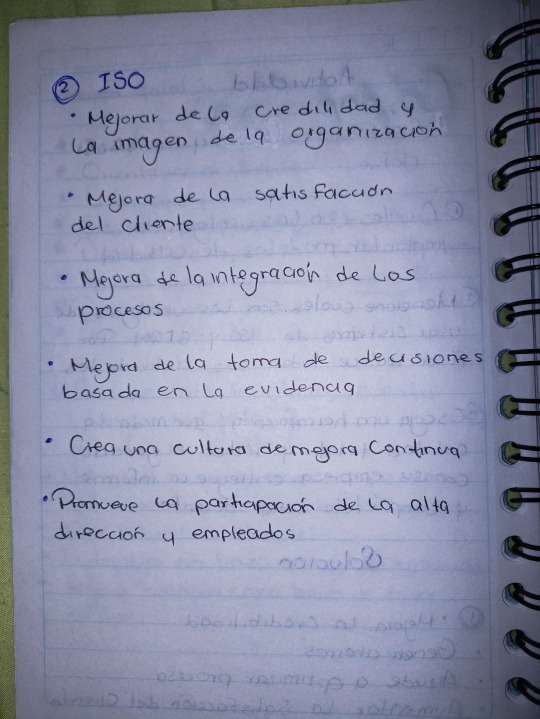 ② ISO
• Mejorar de la credilidad y
la imagen de la organización
• Mejora de la satisfacción
del cliente
• Mejora de la integración de los
procesos
• Mejora de la toma de decisiones
basada en la evidencia
• Crea una cultura de mejora continua
• Promueve la participación de la alta
dirección y empleados